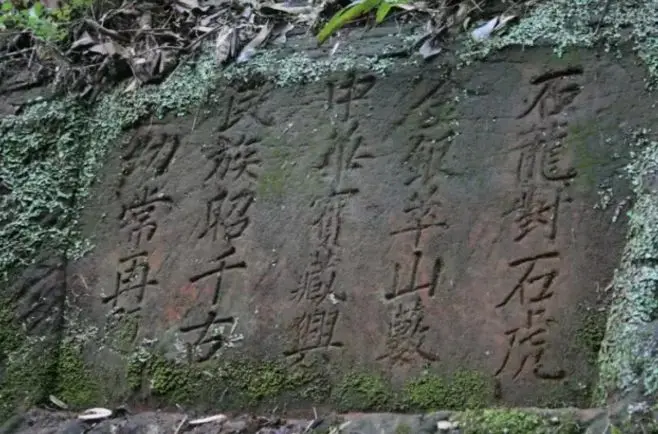 石龍對石虎
金銀萃山藪
中華寶藏興
民族昭千古
常再